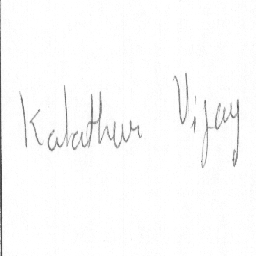 Kalathur Vijay